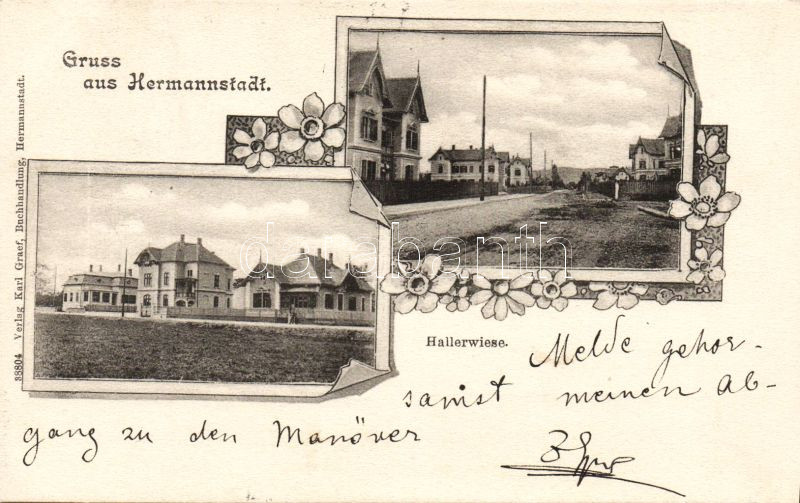 Gruss
aus Hermannstadt.
38804 Verlag Karl Graef, Buchhandlung, Hermannstadt.
darabanth
Hallerwiese.
Melde gehor-
samst meinen Ab-
gang zu den Manöver